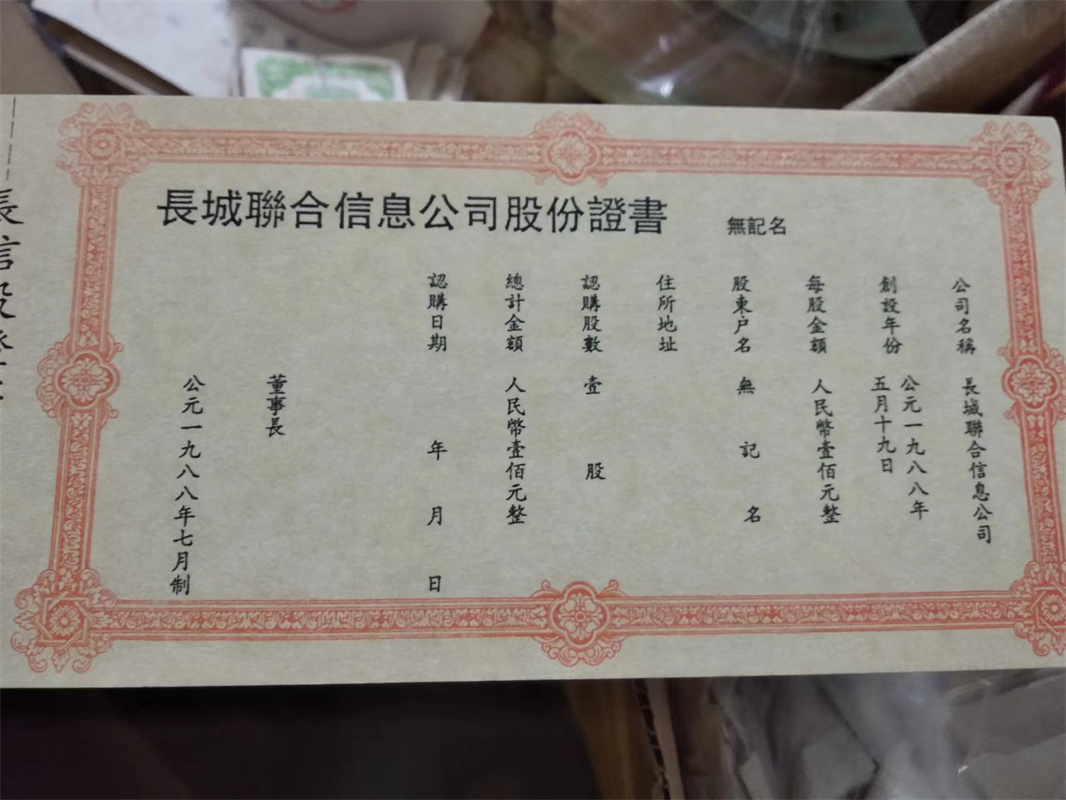 長城聯合信息公司股份證書
無記名
公司名稱 長城聯合信息公司
創設年份 公元一九八八年
五月十九日
每股金額 人民幣壹佰元整
股東户名 無記名
住所地址
認購股數 壹股
總計金額 人民幣壹佰元整
認購日期 年月日
董事長
公元一九八八年七月制
長信股